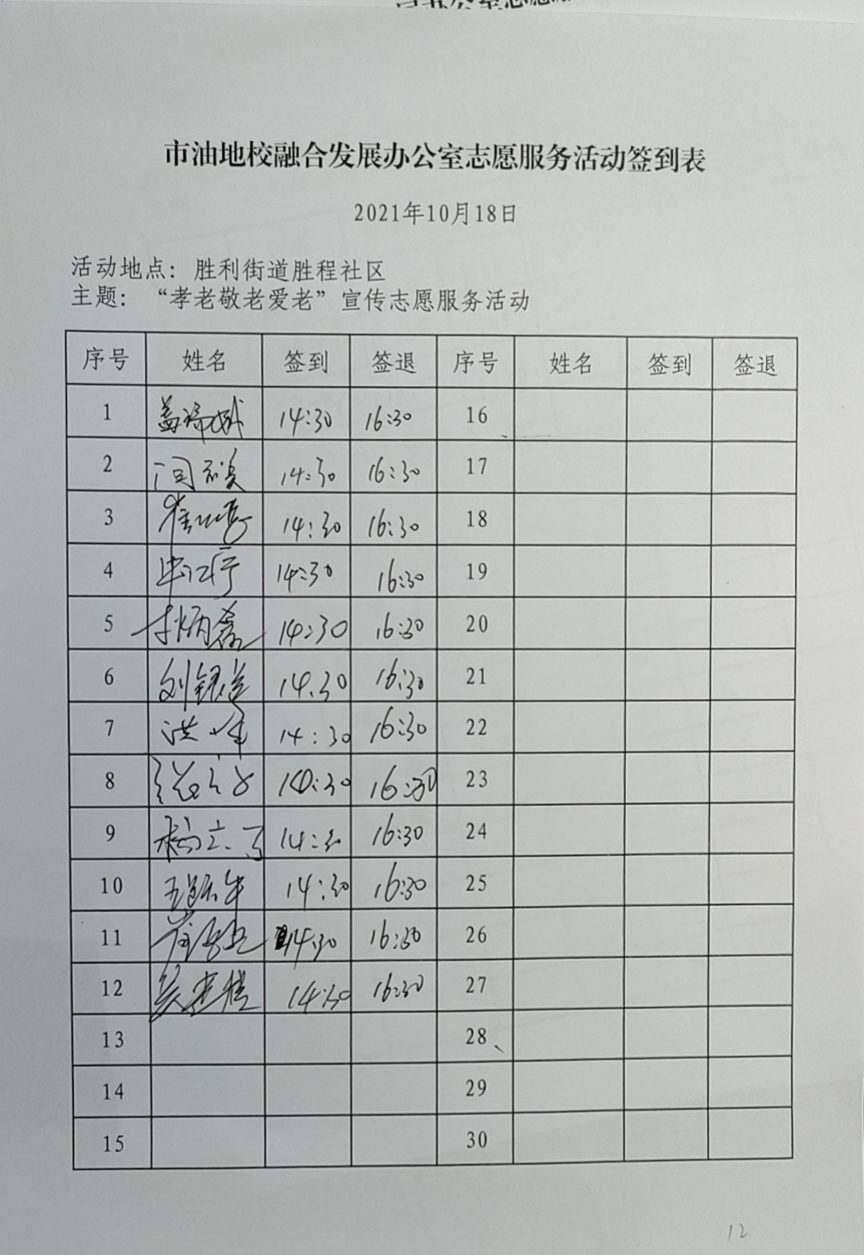 市油地校融合发展办公室志愿服务活动签到表
2021年10月18日
活动地点：胜利街道胜程社区
主题：“孝老敬老爱老”宣传志愿服务活动
序号 姓名 签到 签退 序号 姓名 签到 签退
1 14:30 16:30 16
2 14:30 16:30 17
3 14:30 16:30 18
4 14:30 16:30 19
5 李炳磊 14:30 16:30 20
6 14:30 16:30 21
7 洪峰 14:30 16:30 22
8 16:30 23
9 14:30 16:30 24
10 14:30 16:30 25
11 14:30 16:30 26
12 14:30 16:30 27
13 28
14 29
15 30
12